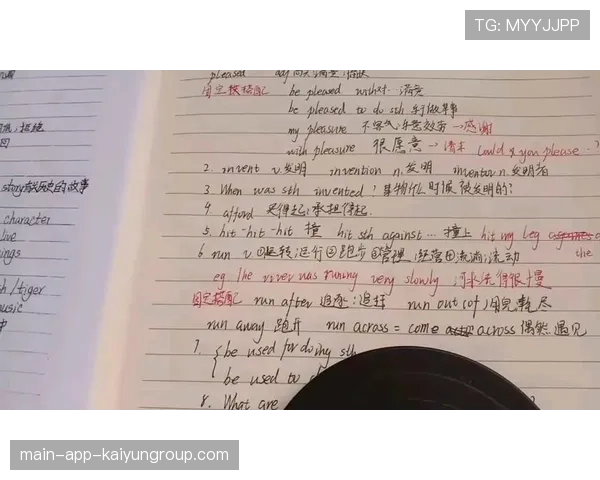 TG: MYYJJPP
pleased adj
固定搭配 be pleased with 满意
be pleased to do sth 乐于做某事
my pleasure 不客气;乐意效劳 → 感谢
with pleasure 很愿意 → 请求 Could you please…?
2. invent v.发明 invention n.发明 inventor n.发明者
3. When was sth invented? 某物什么时候被发明的?
4. afford 买得起;承担得起
5. hit-hit-hit 撞 hit sth against… 撞上 hit my leg the
6. run v.①运转;运行②跑步③管理;经营④流淌;流动
eg The river was runing very slowly 河水流得很慢
固定搭配 run after 追逐;追赶 run out (of) 用完;耗尽
run away 跑开 run across = come across 偶然遇见
7. be used for doing sth
be used to
8. What are
story
的故事
character
ive
ngs
sh/tiger
music
main-app-kaiyungroup.com